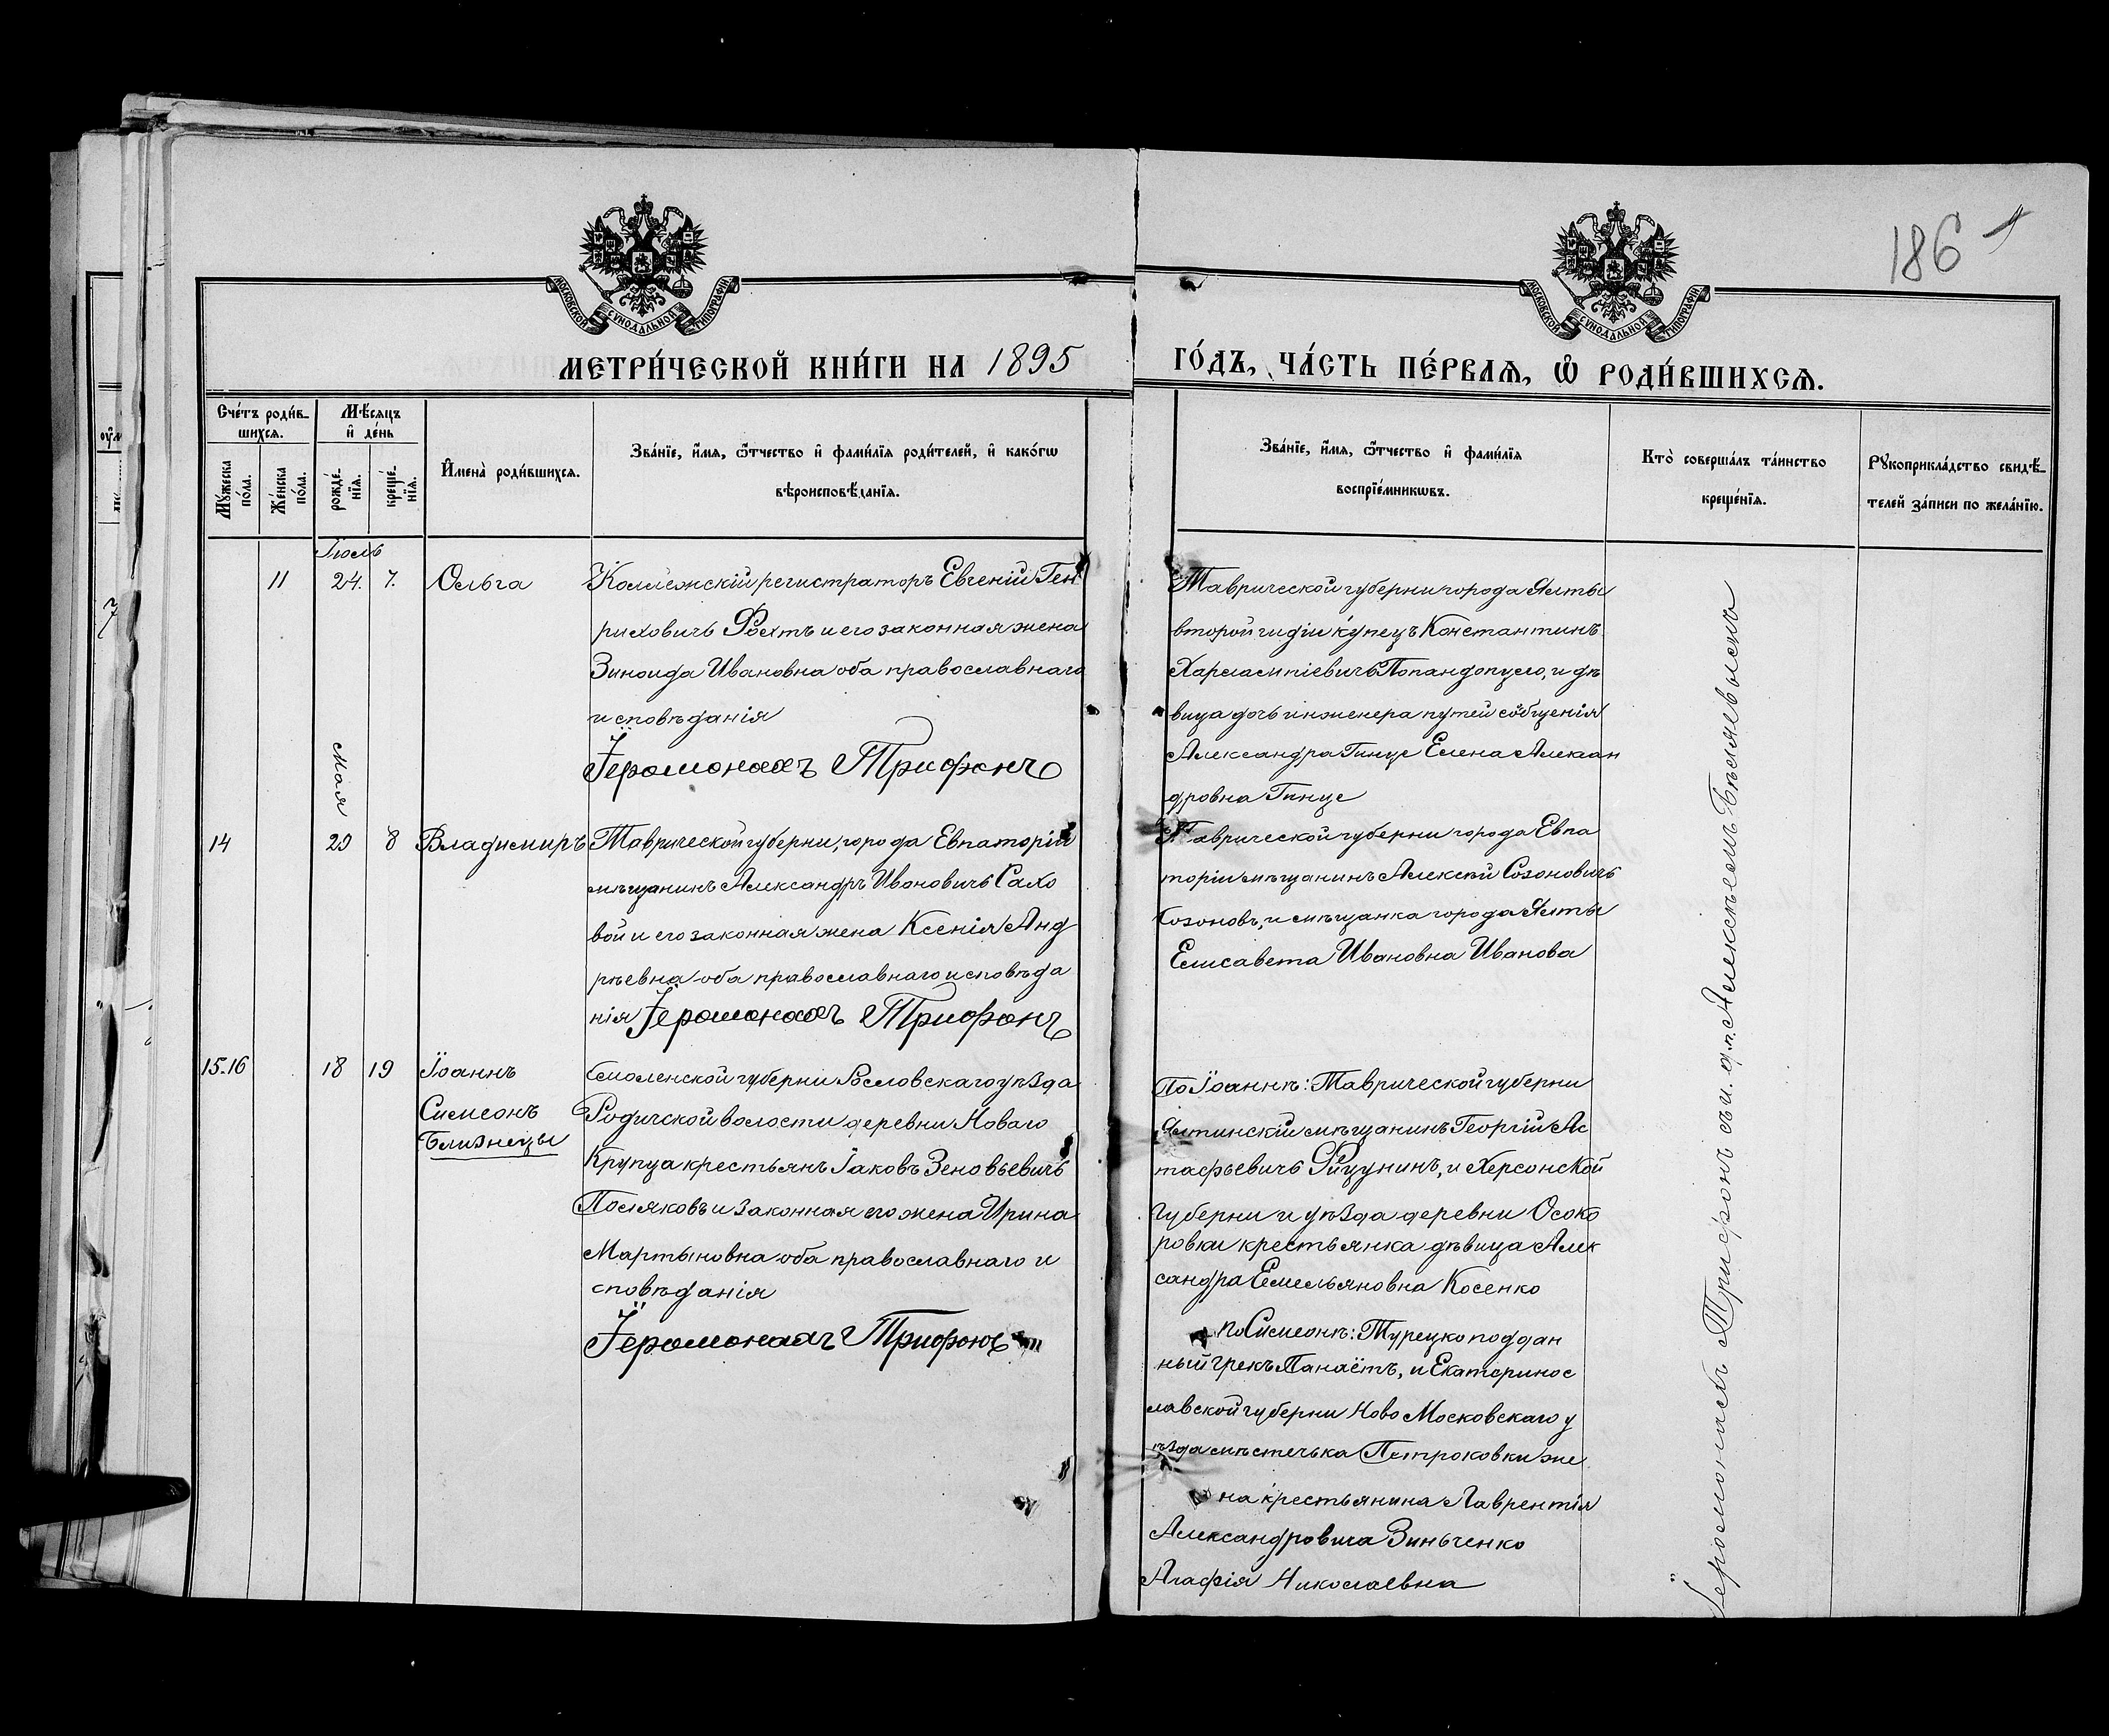 186
МОСКОВСКОЙ СѴНОДАЛЬНОЙ ТИПОГРАФІИ
МОСКОВСКОЙ СѴНОДАЛЬНОЙ ТИПОГРАФІИ
МЕТРИ́ЧЕСКОЙ КНИ́ГИ НА 1895
ГО́ДЪ, ЧА́СТЬ ПЕ́РВАѦ, Ѡ҆ РОДИ́ВШИХСѦ.
Сче́тъ роди́в-
шихсѧ.
Мѣ́сѧцъ
и҆ де́нь
Мꙋ́жеска
по́ла.
Же́нска
по́ла.
рожде́-
нїѧ.
креще́-
нїѧ.
И҆мена̀ роди́вшихсѧ.
Зва́нїе, и҆́мѧ, ѻ҆́тчество и҆ фами́лїѧ роди́телей, и҆ како́гѡ
вѣроисповѣ́данїѧ.
Зва́нїе, и҆́мѧ, ѻ҆́тчество и҆ фами́лїѧ
воспрїе́мникѡвъ.
Кто̀ соверша́лъ та́инство
креще́нїѧ.
Рꙋкоприкла́дство свидѣ́-
телей за́писи по жела́нїю.
Іюль
11 24. 7. Ольга
Коллежскій регистраторъ Евгеній Ген
риховичъ Фохтъ и его законная жена
Зиноида Ивановна оба православнаго
исповѣданія
Іеромонахъ Трифонъ
Таврической губерни города Ялты
второй гилдіи купецъ Константинъ
Харлампіевичъ Попандопуло, и дѣ
вица дочь инженера путей сообщенія
Александра Гинце Елена Алексан
дровна Гинце
Мая
14 29 8 Владимиръ
Таврической губерни, города Евпаторіи
мѣщанинъ Александръ Ивановичъ Сахо
вой и его законная жена Ксенія Анд
рѣевна оба православнаго исповѣда
нія Іеромонахъ Трифонъ
Таврической губерни города Евпа
торіи мѣщанинъ Алексѣй Созоновичъ
Созоновъ, и мѣщанка города Ялты
Елисавета Ивановна Иванова
15.16 18 19 Іоаннъ
Симеонъ
Близнецы
Смоленской губерни Рословскаго уѣзда
Родичской волости деревни Новаго
Крупца крестьянъ Іаковъ Зеновьевичъ
Поляковъ и законная его жена Ирина
Мартыновна оба православнаго и
сповѣданія
Іеромонахъ Трифонъ
По Іоаннѣ: Таврической губерни
Ялтинскій мѣщанинъ Георгій Ас
тафьевичъ и Херсонской
губерни и уѣзда деревни Осоко
ровки крестьянка дѣвица Алек
сандра Емельяновна Косенко
по Симеонѣ: Турецко поддан
ный грекъ Панаётъ, и Екатеринос
лавской губерни Ново Московскаго у
ѣзда мѣстечька Петроковки же
на крестьянина Лаврентія
Александровича Зиньченко
Агафія Николаевна
Іеромонахъ Трифонъ съ и. д. п. Алексѣемъ